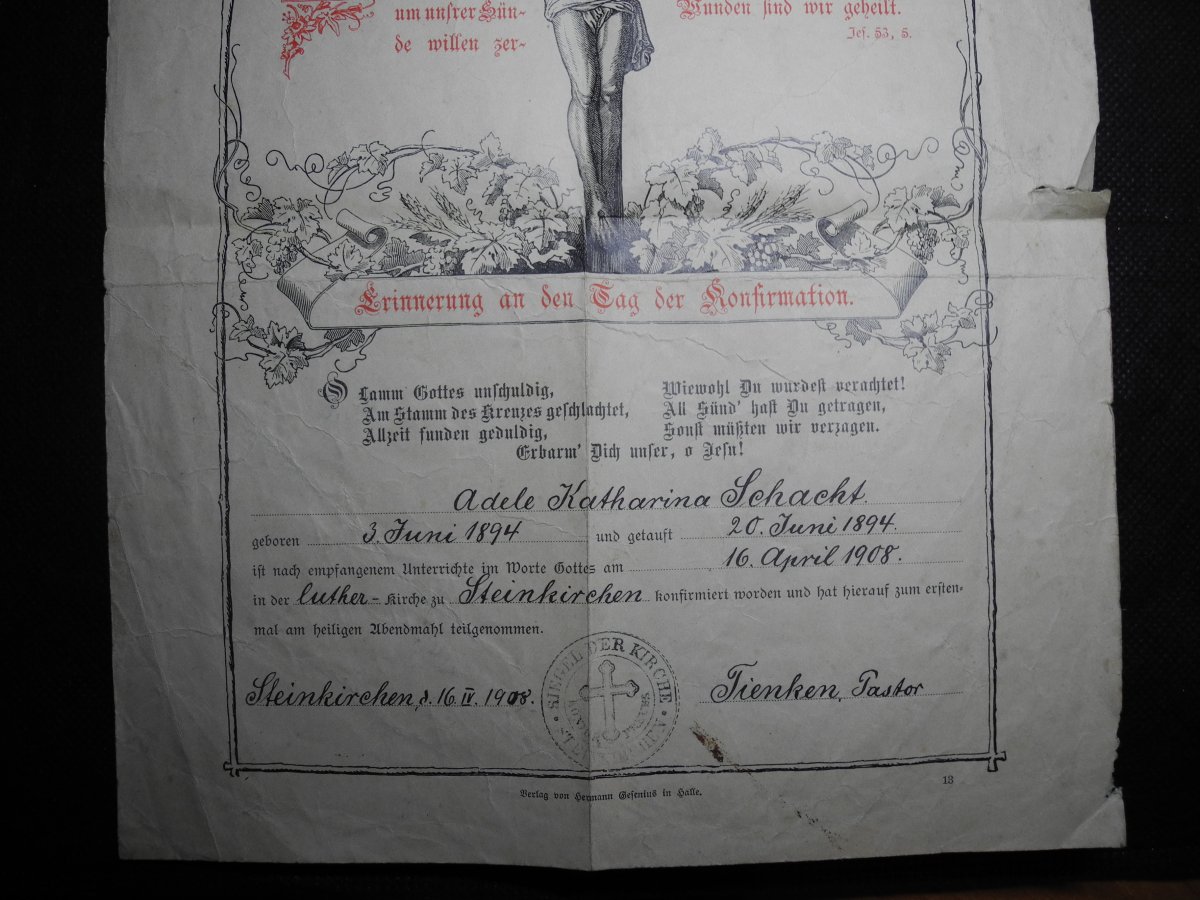 um unsrer Sün-
de willen zer-
Wunden sind wir geheilt.
Jes. 53, 5.
Erinnerung an den Tag der Konfirmation.
O Lamm Gottes unschuldig,
Am Stamm des Kreuzes geschlachtet,
Allzeit funden geduldig,
Wiewohl Du wurdest verachtet!
All Sünd' hast Du getragen,
Sonst müßten wir verzagen.
Erbarm' Dich unser, o Jesu!
Adele Katharina Schacht.
geboren 3. Juni 1894 und getauft 20. Juni 1894.
ist nach empfangenem Unterrichte im Worte Gottes am 16. April 1908.
in der luther- Kirche zu Steinkirchen konfirmiert worden und hat hierauf zum ersten-
mal am heiligen Abendmahl teilgenommen.
Steinkirchen, d. 16. IV. 1908.
SIEGEL DER KIRCHE
Tienken, Pastor
13
Verlag von Hermann Gesenius in Halle.